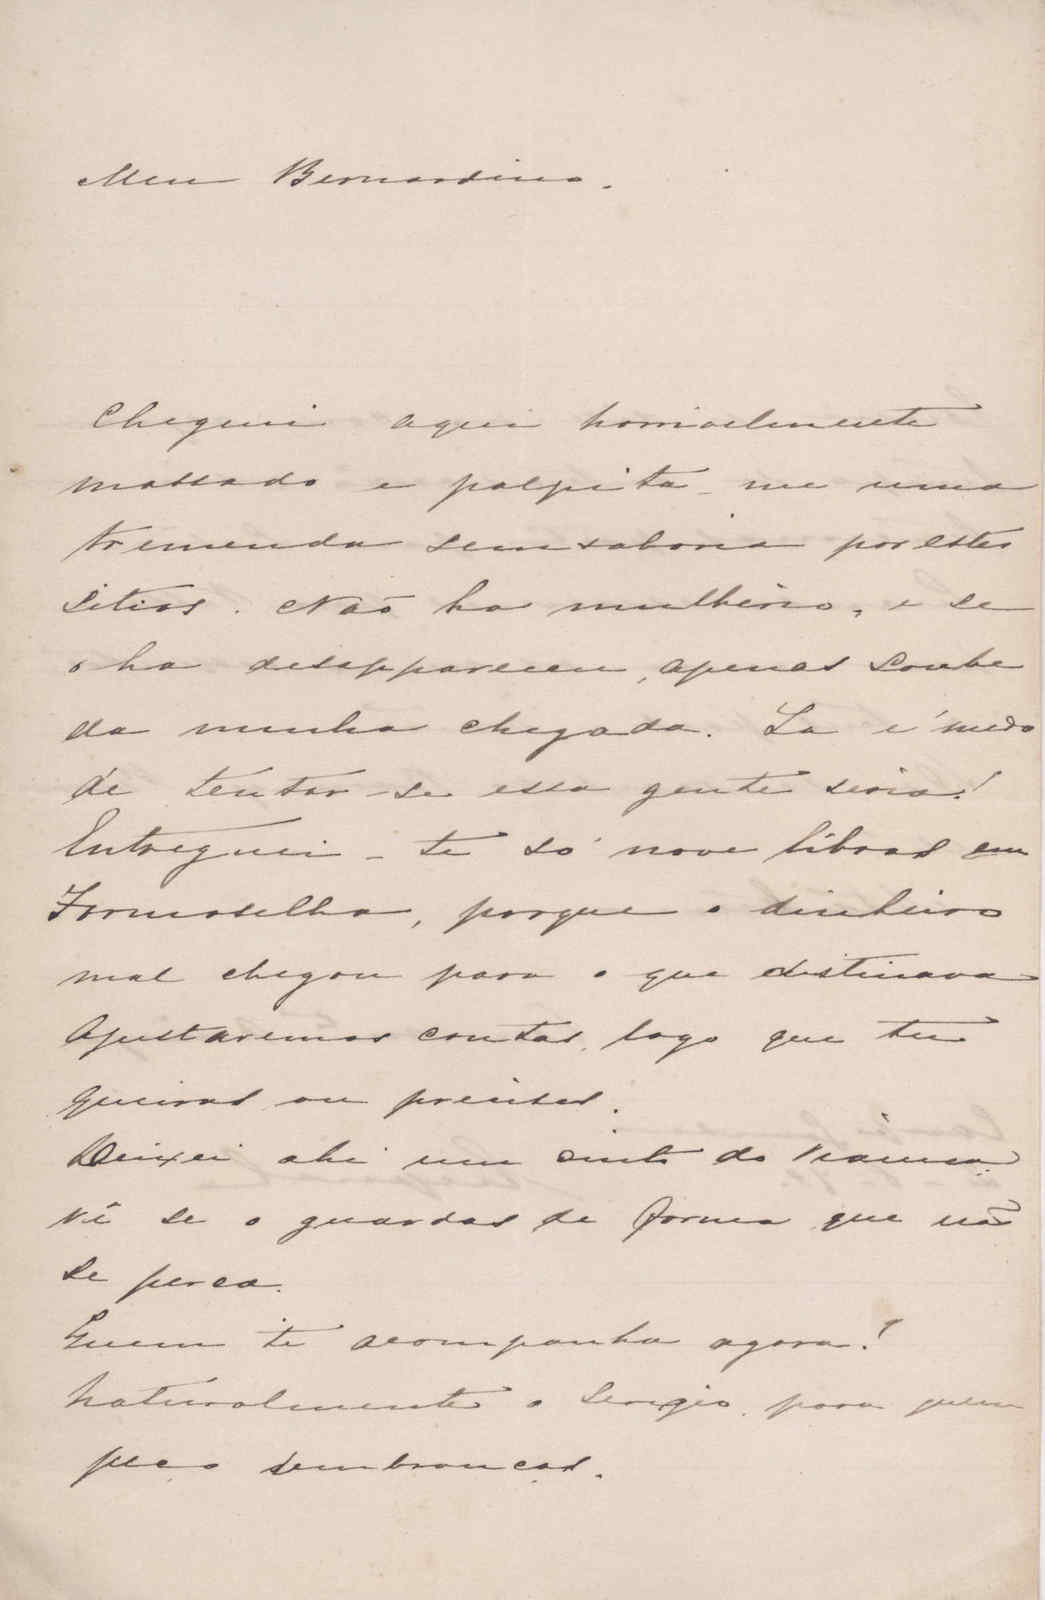 Meu Bernardino.
Cheguei aqui horrivelmente
massado e palpita-me uma
tremenda semsaboria por estes
sitios. Não ha mulherio, e se
o ha desappareceu, apenas soube
da minha chegada. La é medo
de tentar-se essa gente séria!
Entreguei-te só nove libras em
Formoselha, porque o dinheiro
mal chegou para o que destinava
Ajustaremos contas, logo que tu
queiras ou precises.
Deixei ahi um cinto do
Vê se o guardas de forma que não
se perca.
Quem te acompanha agora?
Naturalmente o Sergio, para quem
peço lembranças.